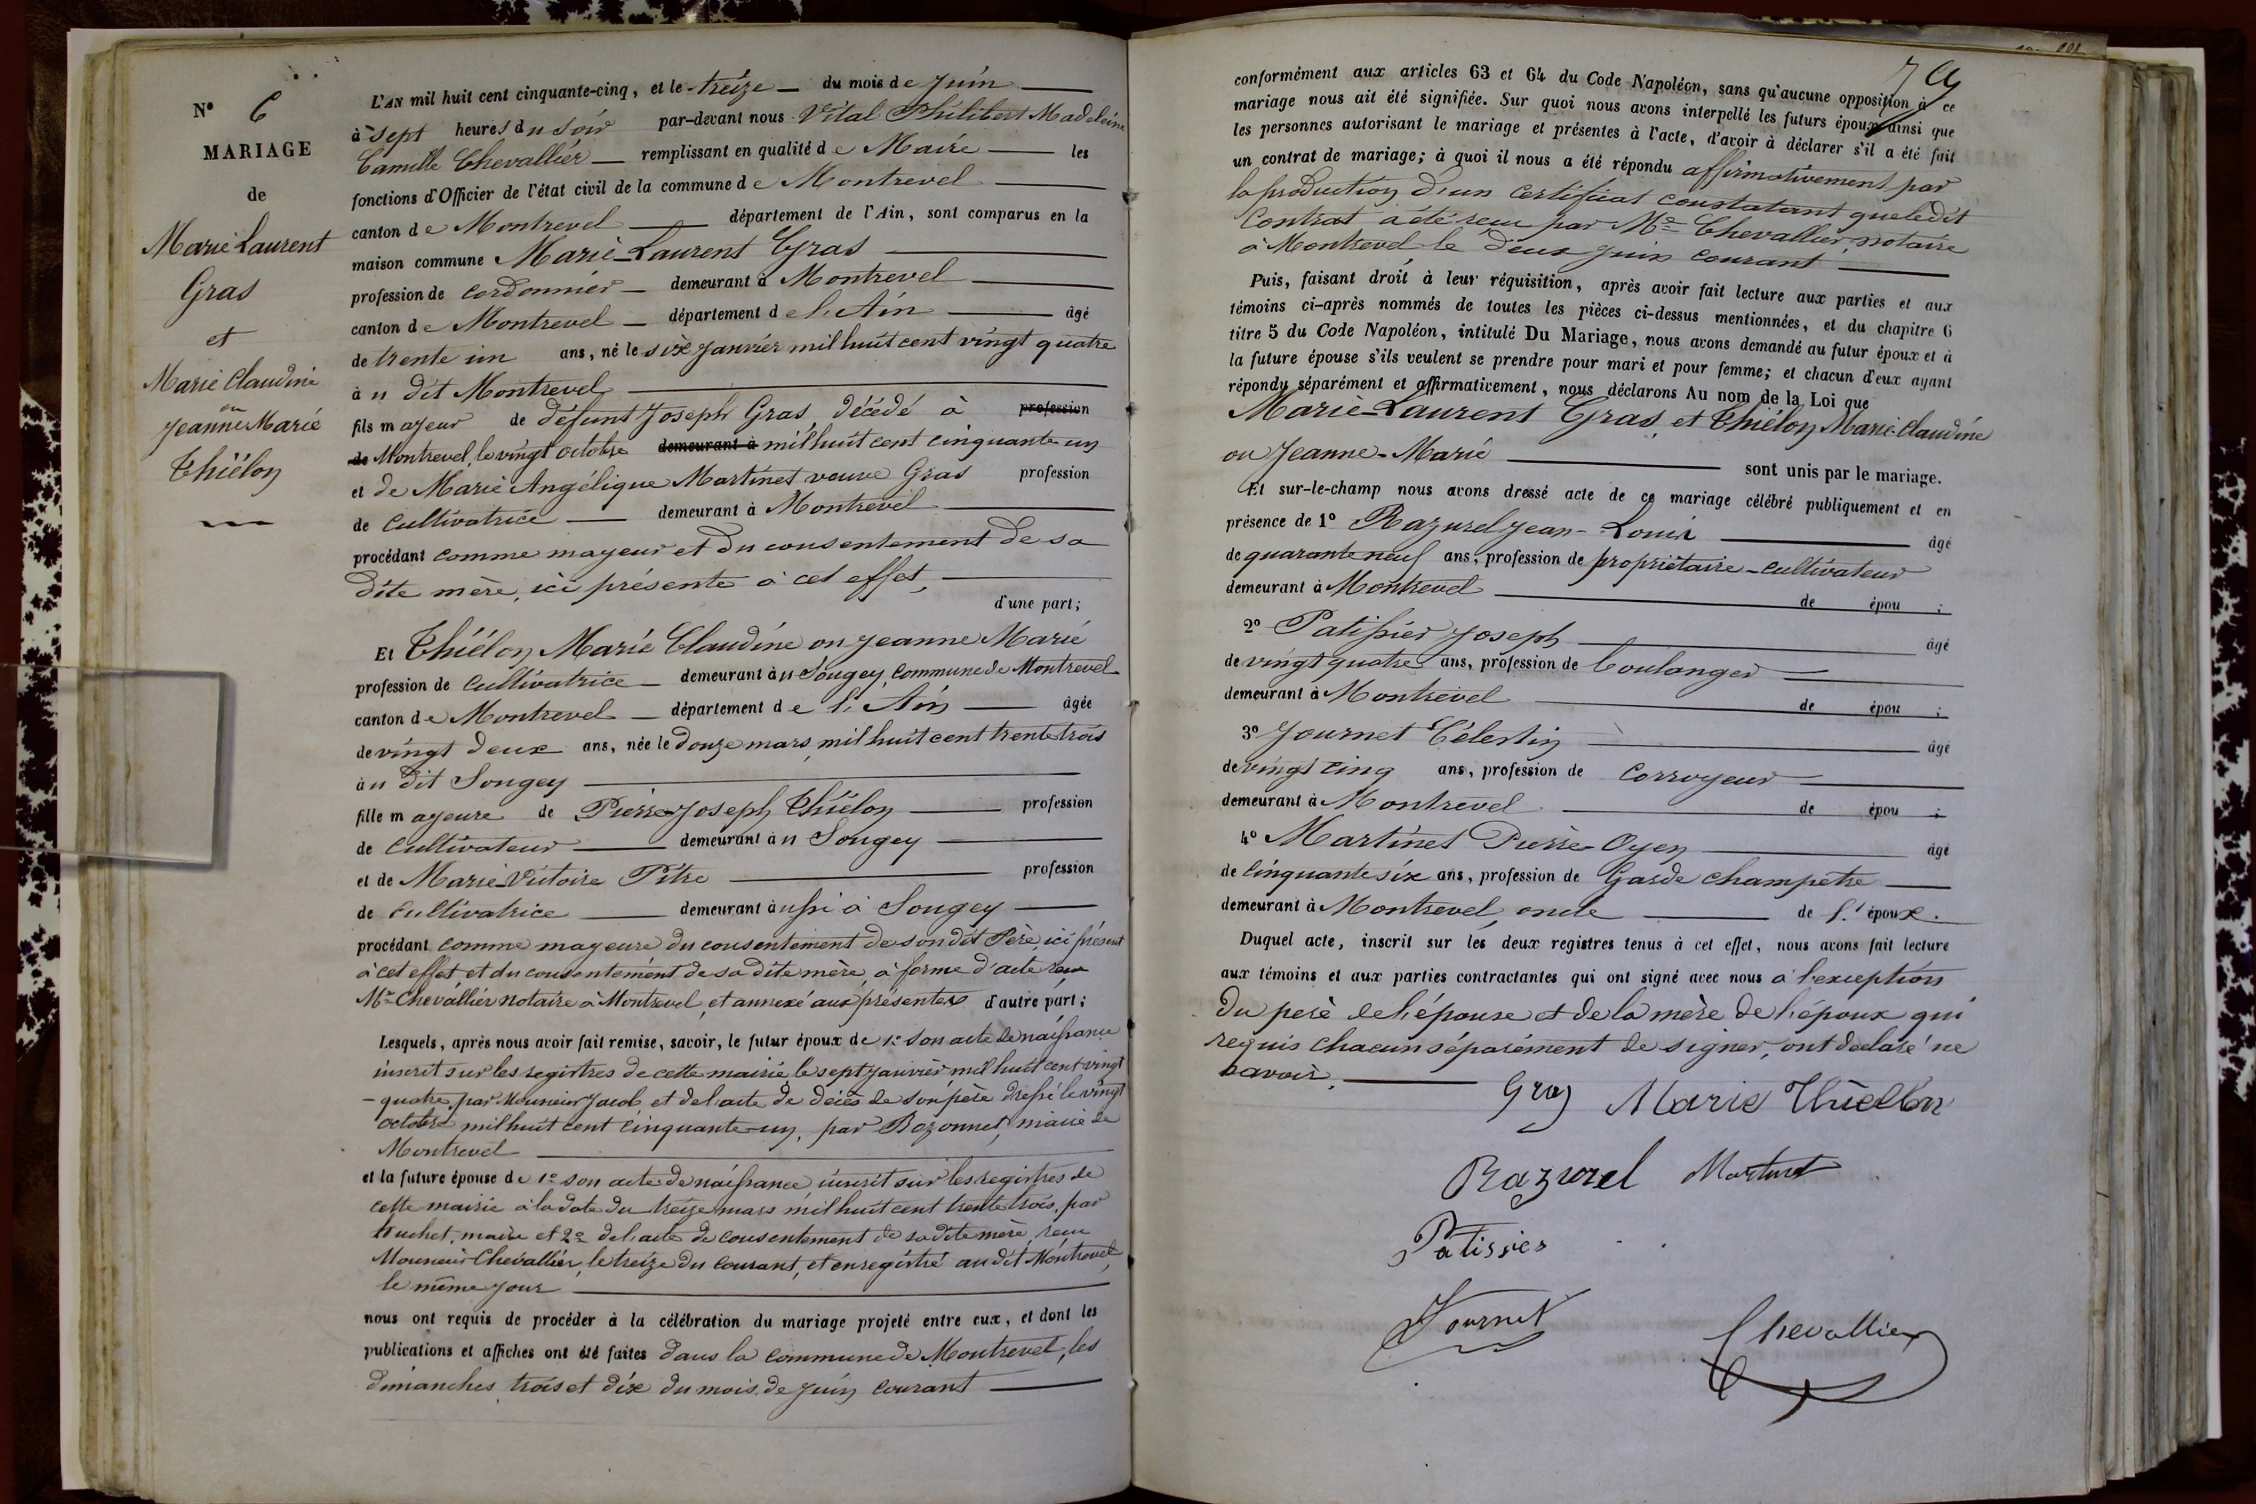 N° 6
MARIAGE
de
Marie Laurent
Gras
et
Marie Claudine
ou
Jeanne Marie
Thiélon
L'AN mil huit cent cinquante-cinq, et le treize du mois de Juin
à sept heures du soir par-devant nous Vital Philibert Madeleine
Camille Chevallier remplissant en qualité de Maire les
fonctions d'Officier de l'état civil de la commune de Montrevel
canton de Montrevel département de l'Ain, sont comparus en la
maison commune Marie-Laurent Gras
profession de cordonnier demeurant à Montrevel
canton de Montrevel département de l'Ain âgé
de trente un ans, né le six Janvier mil huit cent vingt quatre
à u dit Montrevel
fils majeur de défunt Joseph Gras, décédé à profession
de Montrevel, le vingt octobre demeurant à mil huit cent cinquante-un
et de Marie Angélique Martinet veuve Gras profession
de Cultivatrice demeurant à Montrevel
procédant comme mayeur et du consentement de sa
dite mère, ici présente à cet effet,
d'une part;
Et Thiélon Marie Claudine ou Jeanne Marie
profession de Cultivatrice demeurant à u Sougey, commune de Montrevel
canton de Montrevel département de l'Ain âgée
de vingt deux ans, née le douze mars, mil huit cent trente trois
à u dit Sougey
fille mayeure de Pierre-Joseph Thiélon profession
de Cultivateur demeurant à u Sougey
et de Marie-Victoire Pitre profession
de Cultivatrice demeurant aussi à Sougey
procédant comme mayeure du consentement de son dit Père, ici présent
à cet effet et du consentement de sa dite mère, à forme d'acte reçu
Me Chevallier notaire à Montrevel, et annexé aux présentes d'autre part;
Lesquels, après nous avoir fait remise, savoir, le futur époux de 1° son acte de naissance
inscrit sur les registres de cette mairie le sept janvier mil huit cent vingt
- quatre, par Monsieur Jacob, et de l'acte de décès de son père dressé le vingt
octobre mil huit cent cinquante-un, par Bozonnet, maire de
Montrevel
et la future épouse de 1° son acte de naissance inscrit sur les registres de
cette mairie à la date du treize mars mil huit cent trente trois, par
maire et 2° de l'acte de consentement de sa dite mère, reçu
Monsieur Chevallier, le treize du courant, et enregistré au dit Montrevel,
le même jour
nous ont requis de procéder à la célébration du mariage projeté entre eux, et dont les
publications et affiches ont été faites dans la commune de Montrevel, les
dimanches trois et dix du mois de juin courant
conformément aux articles 63 et 64 du Code Napoléon, sans qu'aucune opposition à ce
mariage nous ait été signifiée. Sur quoi nous avons interpellé les futurs époux ainsi que
les personnes autorisant le mariage et présentes à l'acte, d'avoir à déclarer s'il a été fait
un contrat de mariage; à quoi il nous a été répondu affirmativement par
la production d'un certificat constatant que le dit
Contrat a été reçu par Me Chevallier, notaire
à Montrevel le deux juin courant
Puis, faisant droit à leur réquisition, après avoir fait lecture aux parties et aux
témoins ci-après nommés de toutes les pièces ci-dessus mentionnées, et du chapitre 6
titre 5 du Code Napoléon, intitulé Du Mariage, nous avons demandé au futur époux et à
la future épouse s'ils veulent se prendre pour mari et pour femme; et chacun d'eux ayant
répondu séparément et affirmativement, nous déclarons Au nom de la Loi que
Marie-Laurent Gras, et Thiélon Marie-Claudine
ou Jeanne-Marie sont unis par le mariage.
Et sur-le-champ nous avons dressé acte de ce mariage célébré publiquement et en
présence de 1° Razurel Jean-Louis âgé
de quarante neuf ans, profession de propriétaire-cultivateur
demeurant à Montrevel de épou ;
2° Patissier Joseph âgé
de vingt quatre ans, profession de boulanger
demeurant à Montrevel de épou ;
3° Journet Célestin âgé
de vingt cinq ans, profession de corroyeur
demeurant à Montrevel de épou ;
4° Martinet Pierre-Oyen âgé
de Cinquante six ans, profession de Garde Champetre
demeurant à Montrevel, oncle de l' époux.
Duquel acte, inscrit sur les deux registres tenus à cet effet, nous avons fait lecture
aux témoins et aux parties contractantes qui ont signé avec nous à l'exception
du père de l'épouse et de la mère de l'époux qui
requis chacun séparément de signer, ont déclaré ne
savoir.
Gras Marie Thiellon
Razurel Martinet
Patissier
Journet
Chevallier